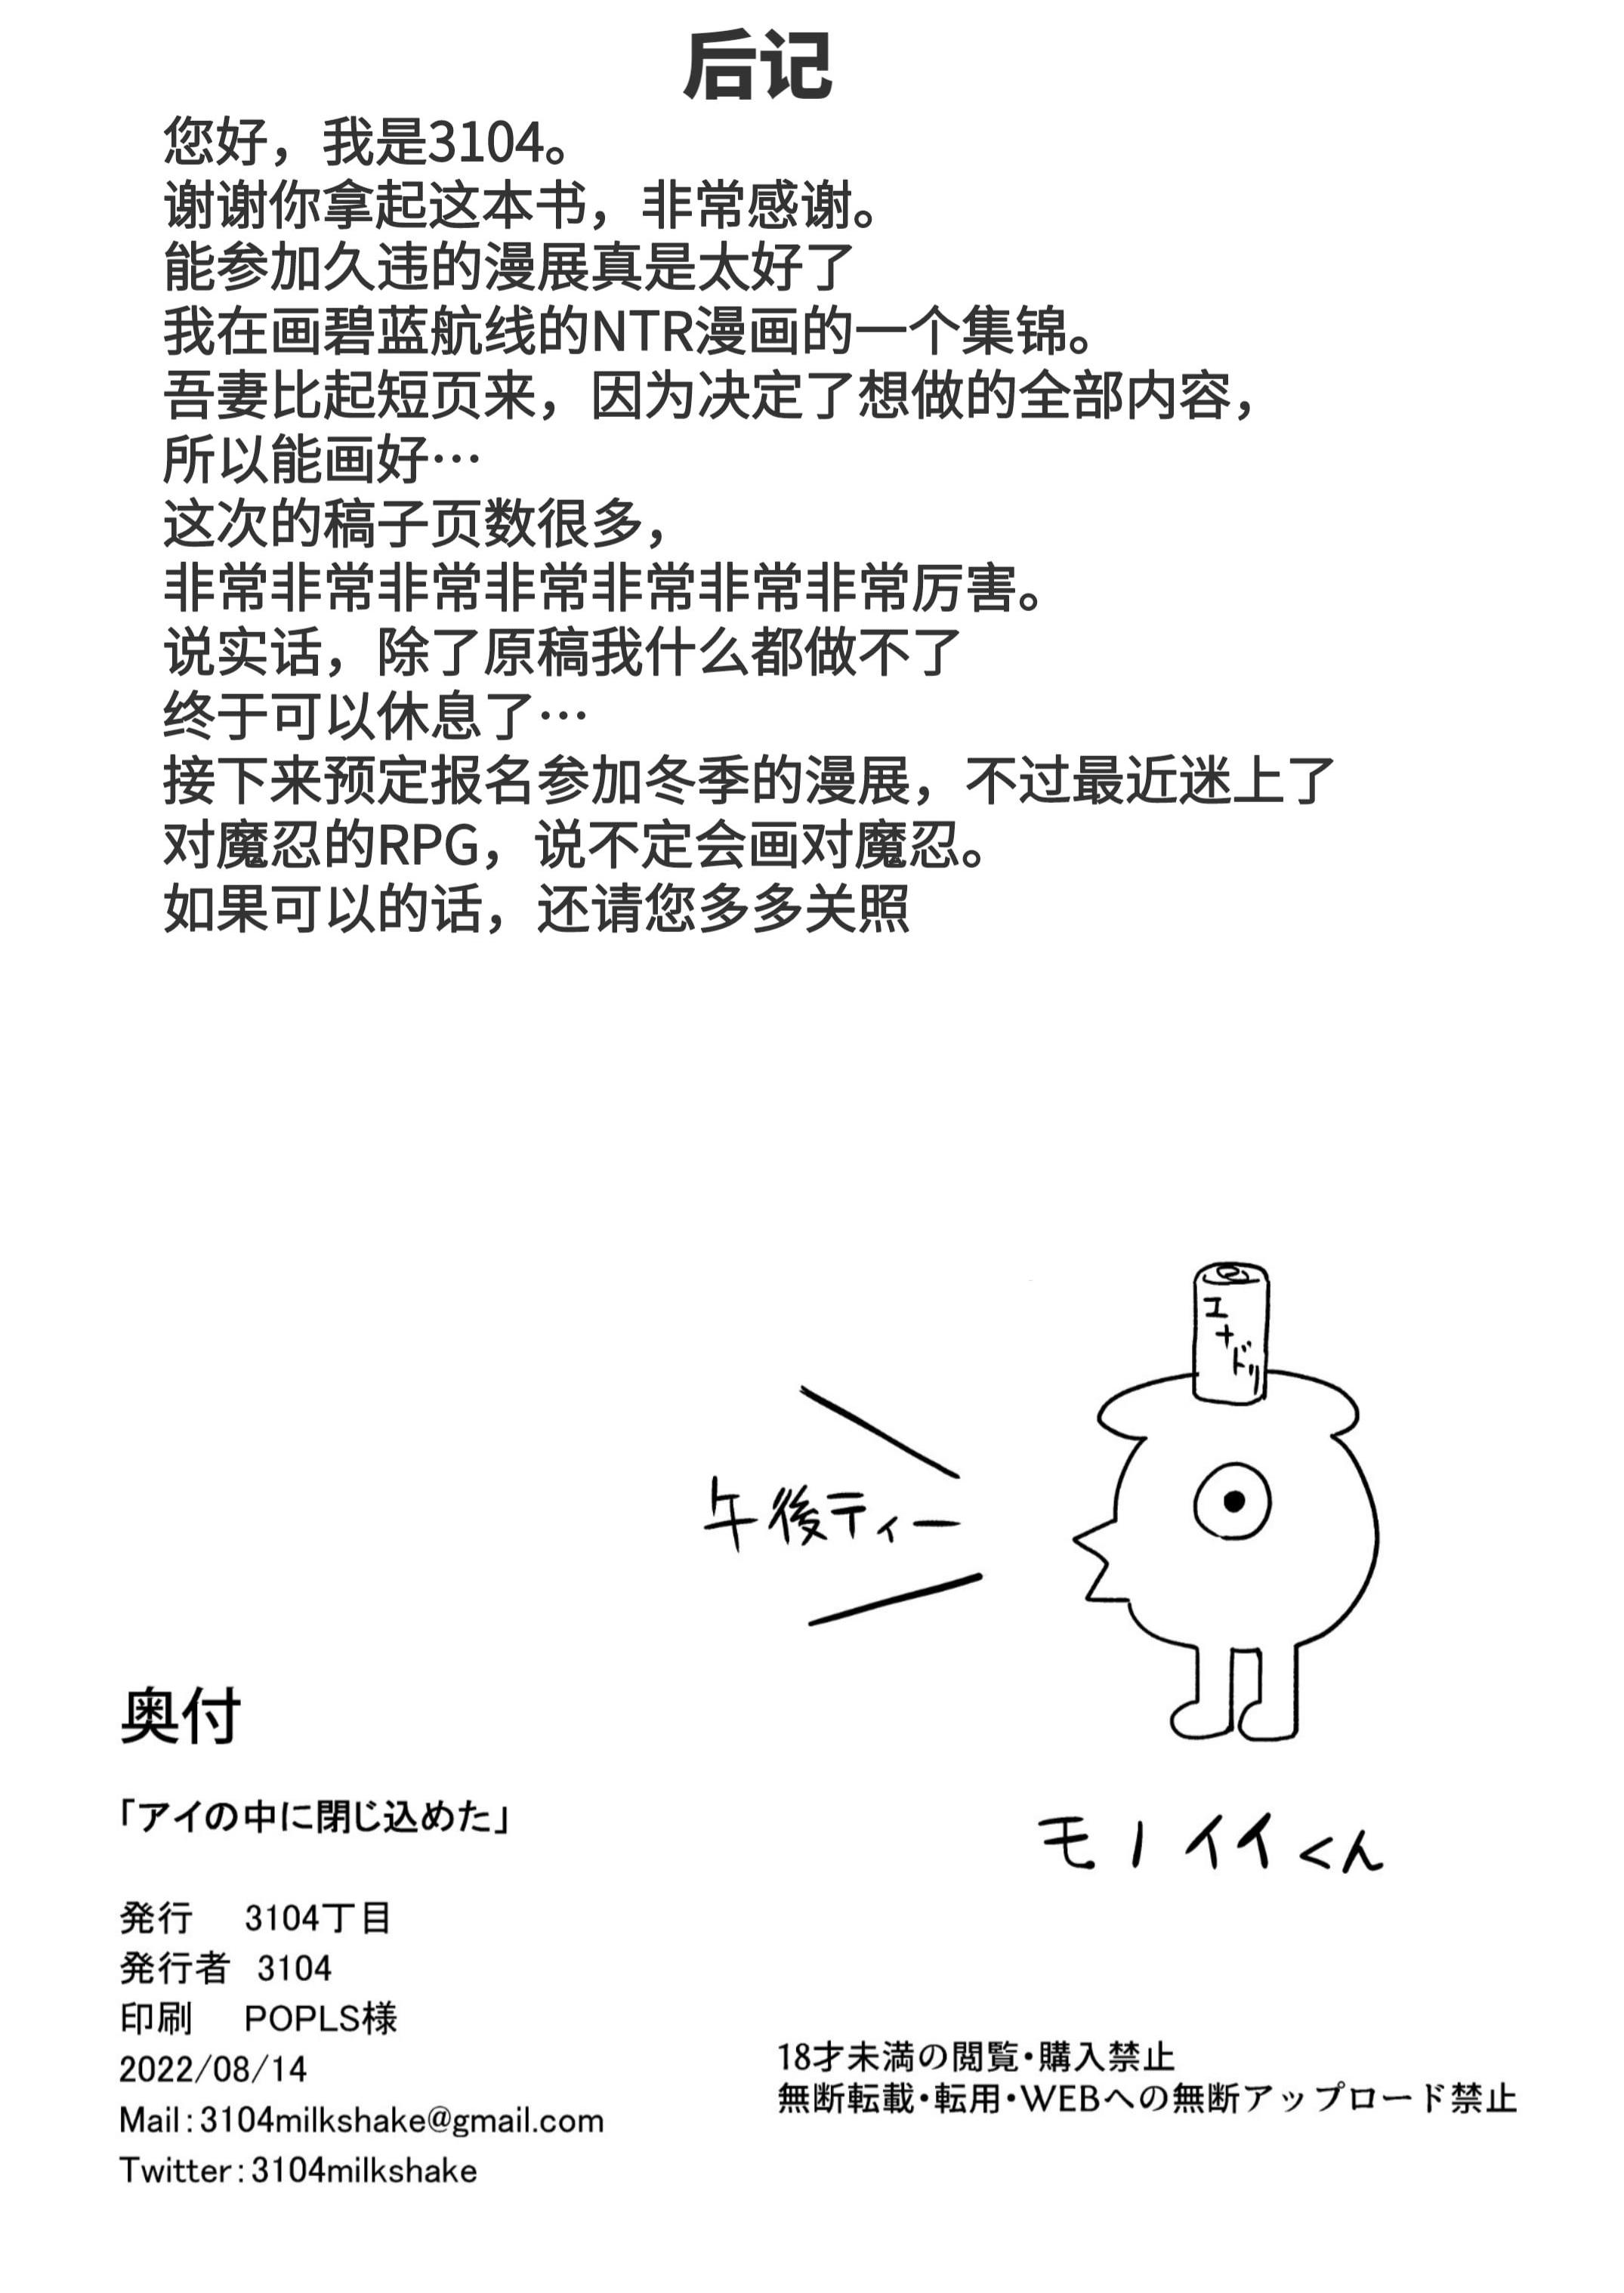 后记
您好，我是3104。
谢谢你拿起这本书，非常感谢。
能参加久违的漫展真是太好了
我在画碧蓝航线的NTR漫画的一个集锦。
吾妻比起短页来，因为决定了想做的全部内容，
所以能画好…
这次的稿子页数很多，
非常非常非常非常非常非常非常厉害。
说实话，除了原稿我什么都做不了
终于可以休息了…
接下来预定报名参加冬季的漫展，不过最近迷上了
对魔忍的RPG，说不定会画对魔忍。
如果可以的话，还请您多多关照
エナドリ
午後ティー
モノイイくん
奥付
「アイの中に閉じ込めた」
発行　3104丁目
発行者　3104
印刷　POPLS様
2022/08/14
Mail：3104milkshake@gmail.com
Twitter：3104milkshake
18才未満の閲覧・購入禁止
無断転載・転用・WEBへの無断アップロード禁止